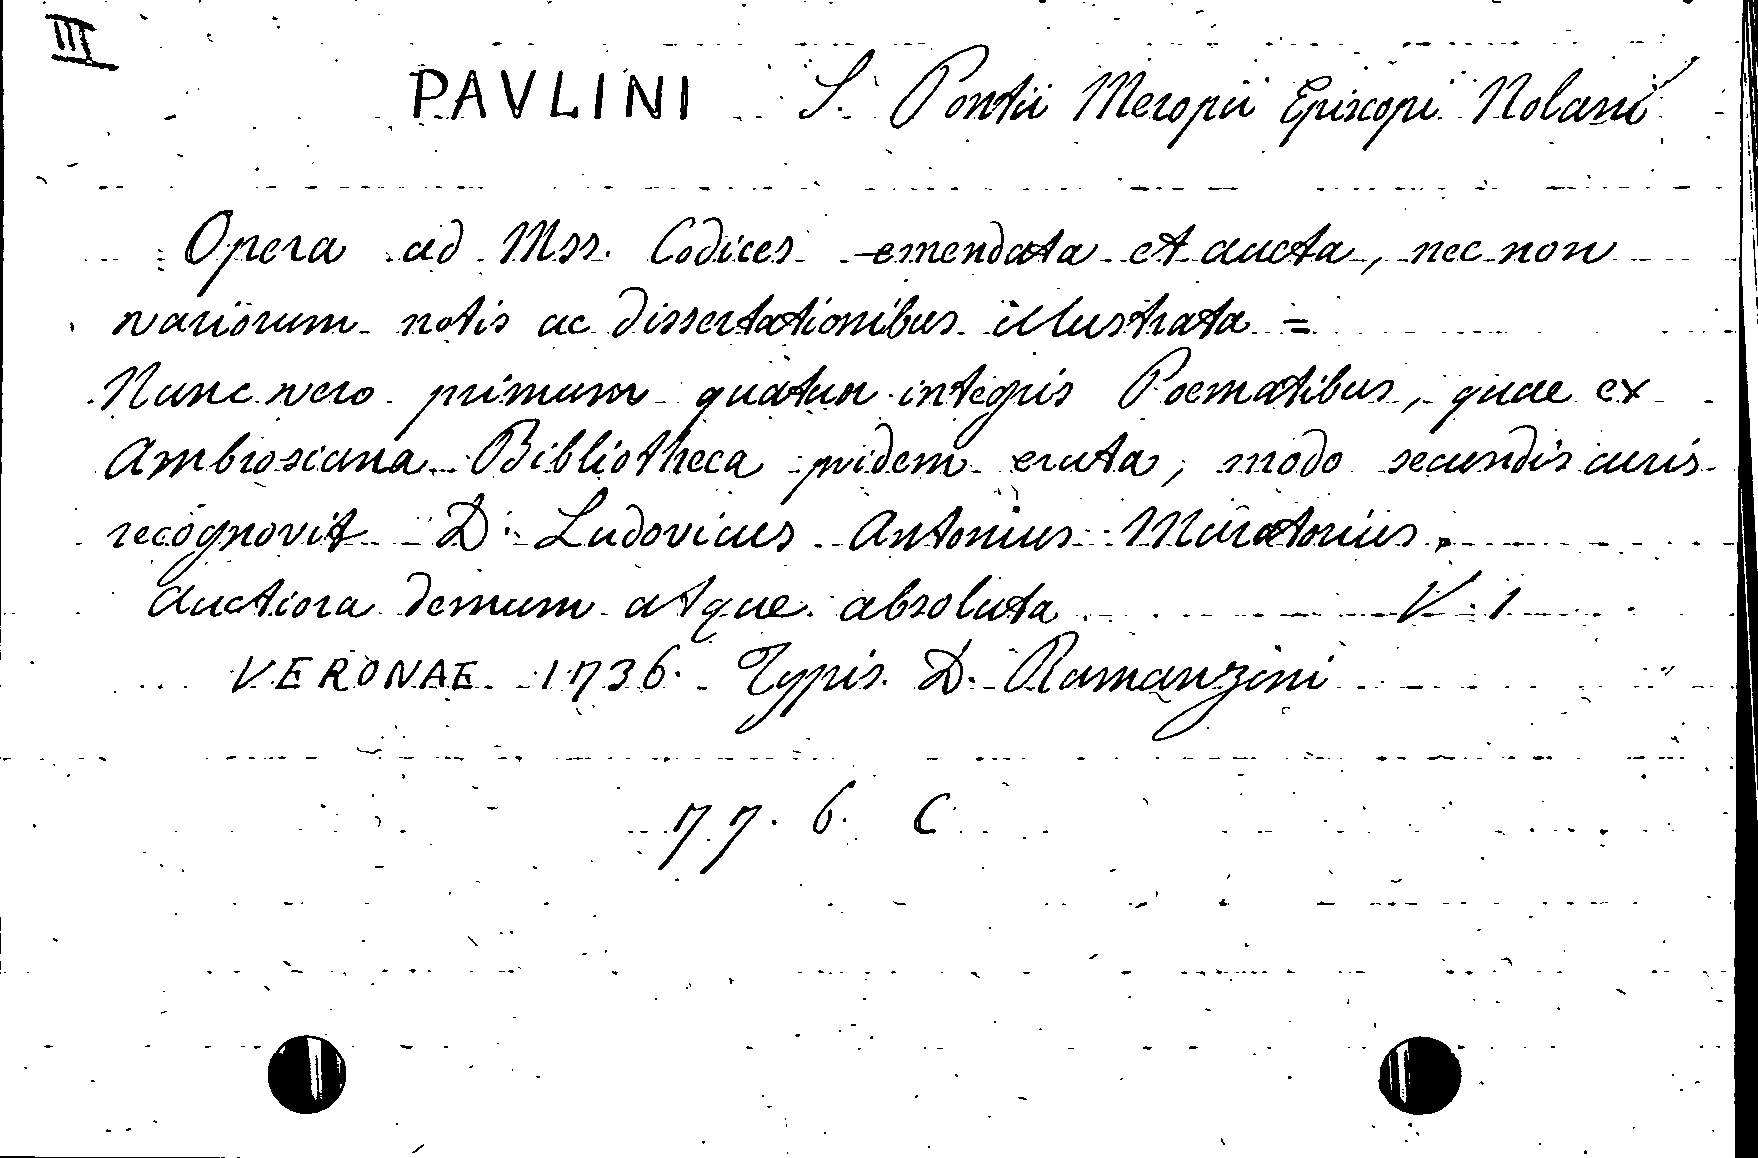 III
PAVLINI S. Pontii Meropii Episcopi Nolani
Opera ad Mss. Codices emendata et aucta, nec non
variorum notis ac dissertationibus illustrata =
Nunc vero primum quatuor integris Poematibus, quae ex
Ambrosiana Bibliotheca pridem eruta, modo secundis curis
recognovit D. Ludovicus Antonius Muratorius,
auctiora demum atque absoluta V. 1
VERONAE 1736. Typis. D. Ramanzini
77. 6. C